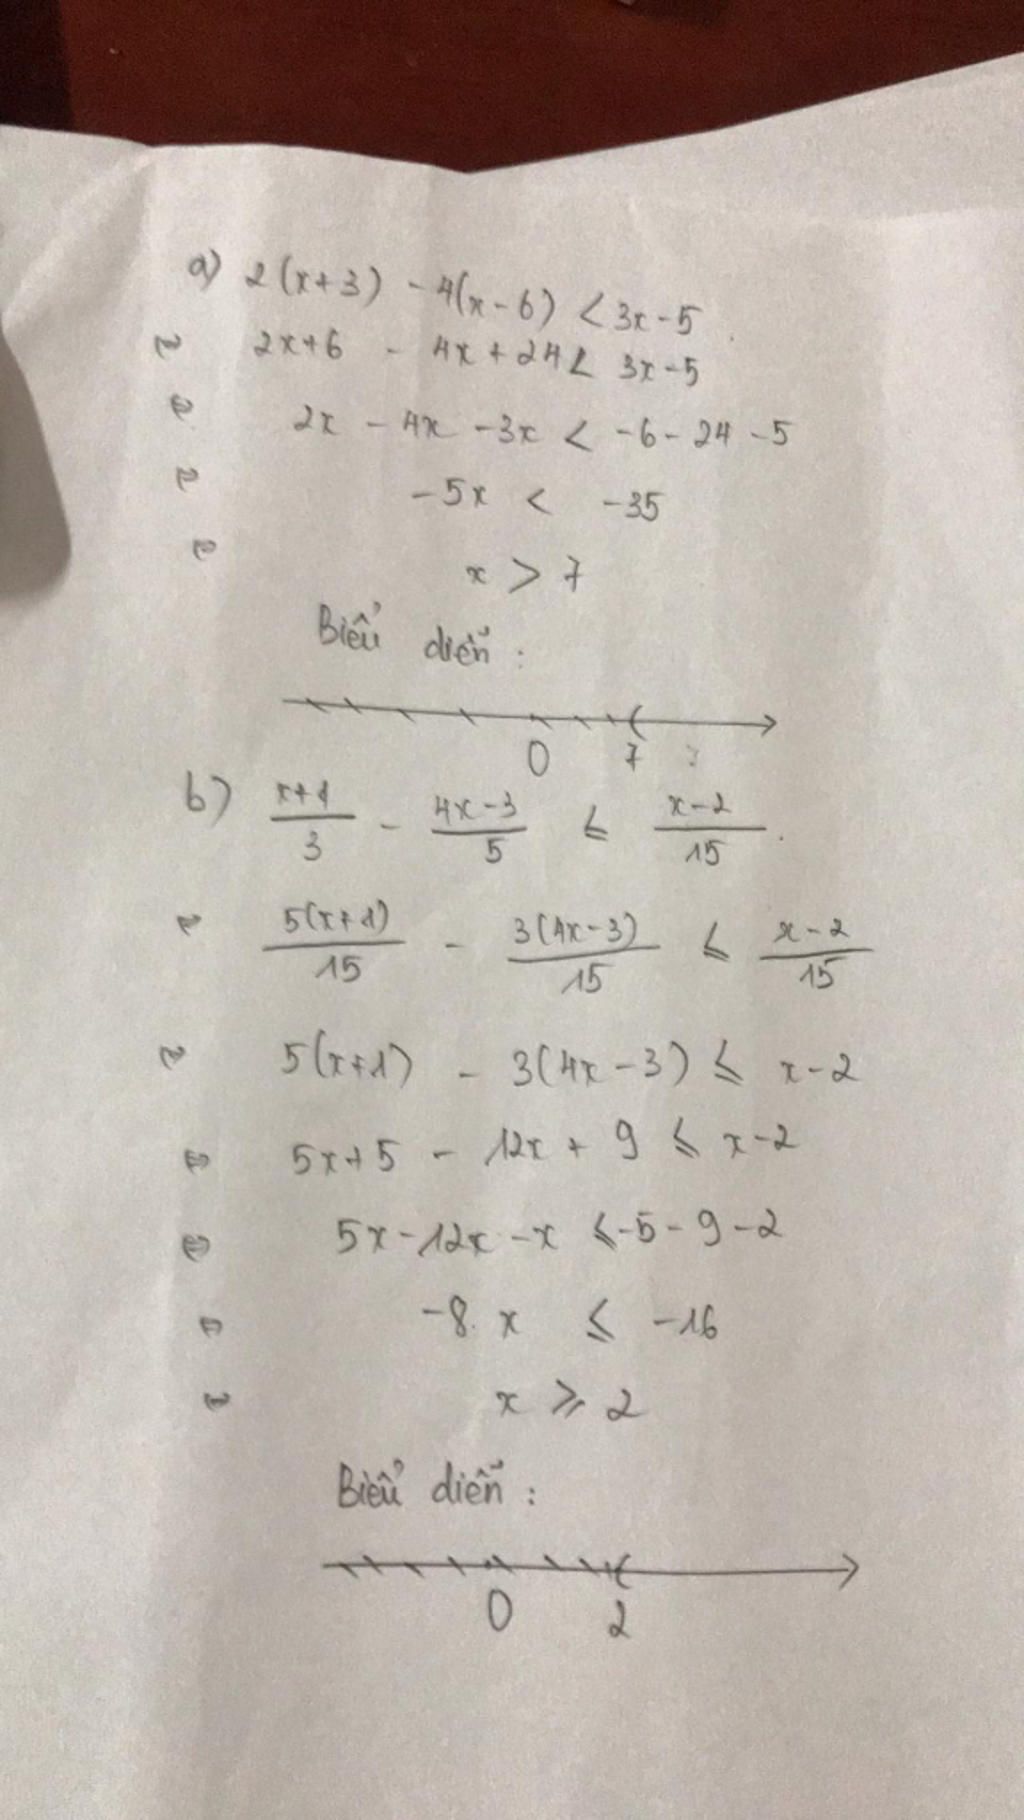 a) 2(x+3) - 4(x-6) < 3x-5
⇔ 2x+6 - 4x+24 < 3x-5
⇔ 2x - 4x - 3x < -6-24-5
⇔ -5x < -35
⇔ x > 7
Biểu diễn :
0 7
b) \frac{x+1}{3} - \frac{4x-3}{5} ≤ \frac{x-2}{15}
⇔ \frac{5(x+1)}{15} - \frac{3(4x-3)}{15} ≤ \frac{x-2}{15}
⇔ 5(x+1) - 3(4x-3) ≤ x-2
⇔ 5x+5 - 12x+9 ≤ x-2
⇔ 5x-12x-x ≤ -5-9-2
⇔ -8.x ≤ -16
⇔ x ≥ 2
Biểu diễn :
0 2